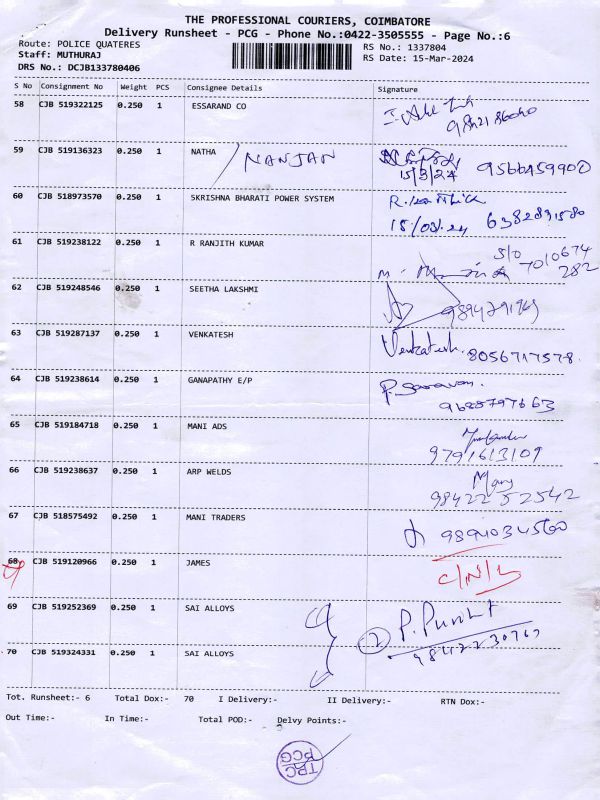 THE PROFESSIONAL COURIERS, COIMBATORE
Delivery Runsheet - PCG - Phone No.:0422-3505555 - Page No.:6
Route: POLICE QUATERES
RS No.: 1337804
Staff: MUTHURAJ
RS Date: 15-Mar-2024
DRS No.: DCJB133780406
S No Consignment No Weight PCS Consignee Details Signature
58 CJB 519322125 0.250 1 ESSARAND CO
59 CJB 519136323 0.250 1 NATHA / NANJAN 15/3/24 9566459900
60 CJB 518973570 0.250 1 SKRISHNA BHARATI POWER SYSTEM
15/03/24 6382891580
61 CJB 519238122 0.250 1 R RANJITH KUMAR S/O
7010674
282
62 CJB 519248546 0.250 1 SEETHA LAKSHMI
63 CJB 519287137 0.250 1 VENKATESH Venkatesh. 8056717578.
64 CJB 519238614 0.250 1 GANAPATHY E/P P. Saravan.
9688797663
65 CJB 519184718 0.250 1 MANI ADS
9791613109
66 CJB 519238637 0.250 1 ARP WELDS Mary
98422 52542
67 CJB 518575492 0.250 1 MANI TRADERS 9894034560
68 CJB 519120966 0.250 1 JAMES
69 CJB 519252369 0.250 1 SAI ALLOYS 2 P.
9842230767
70 CJB 519324331 0.250 1 SAI ALLOYS
Tot. Runsheet:- 6 Total Dox:- 70 I Delivery:- II Delivery:- RTN Dox:-
Out Time:- In Time:- Total POD:- Delvy Points:-
TPC
PCG